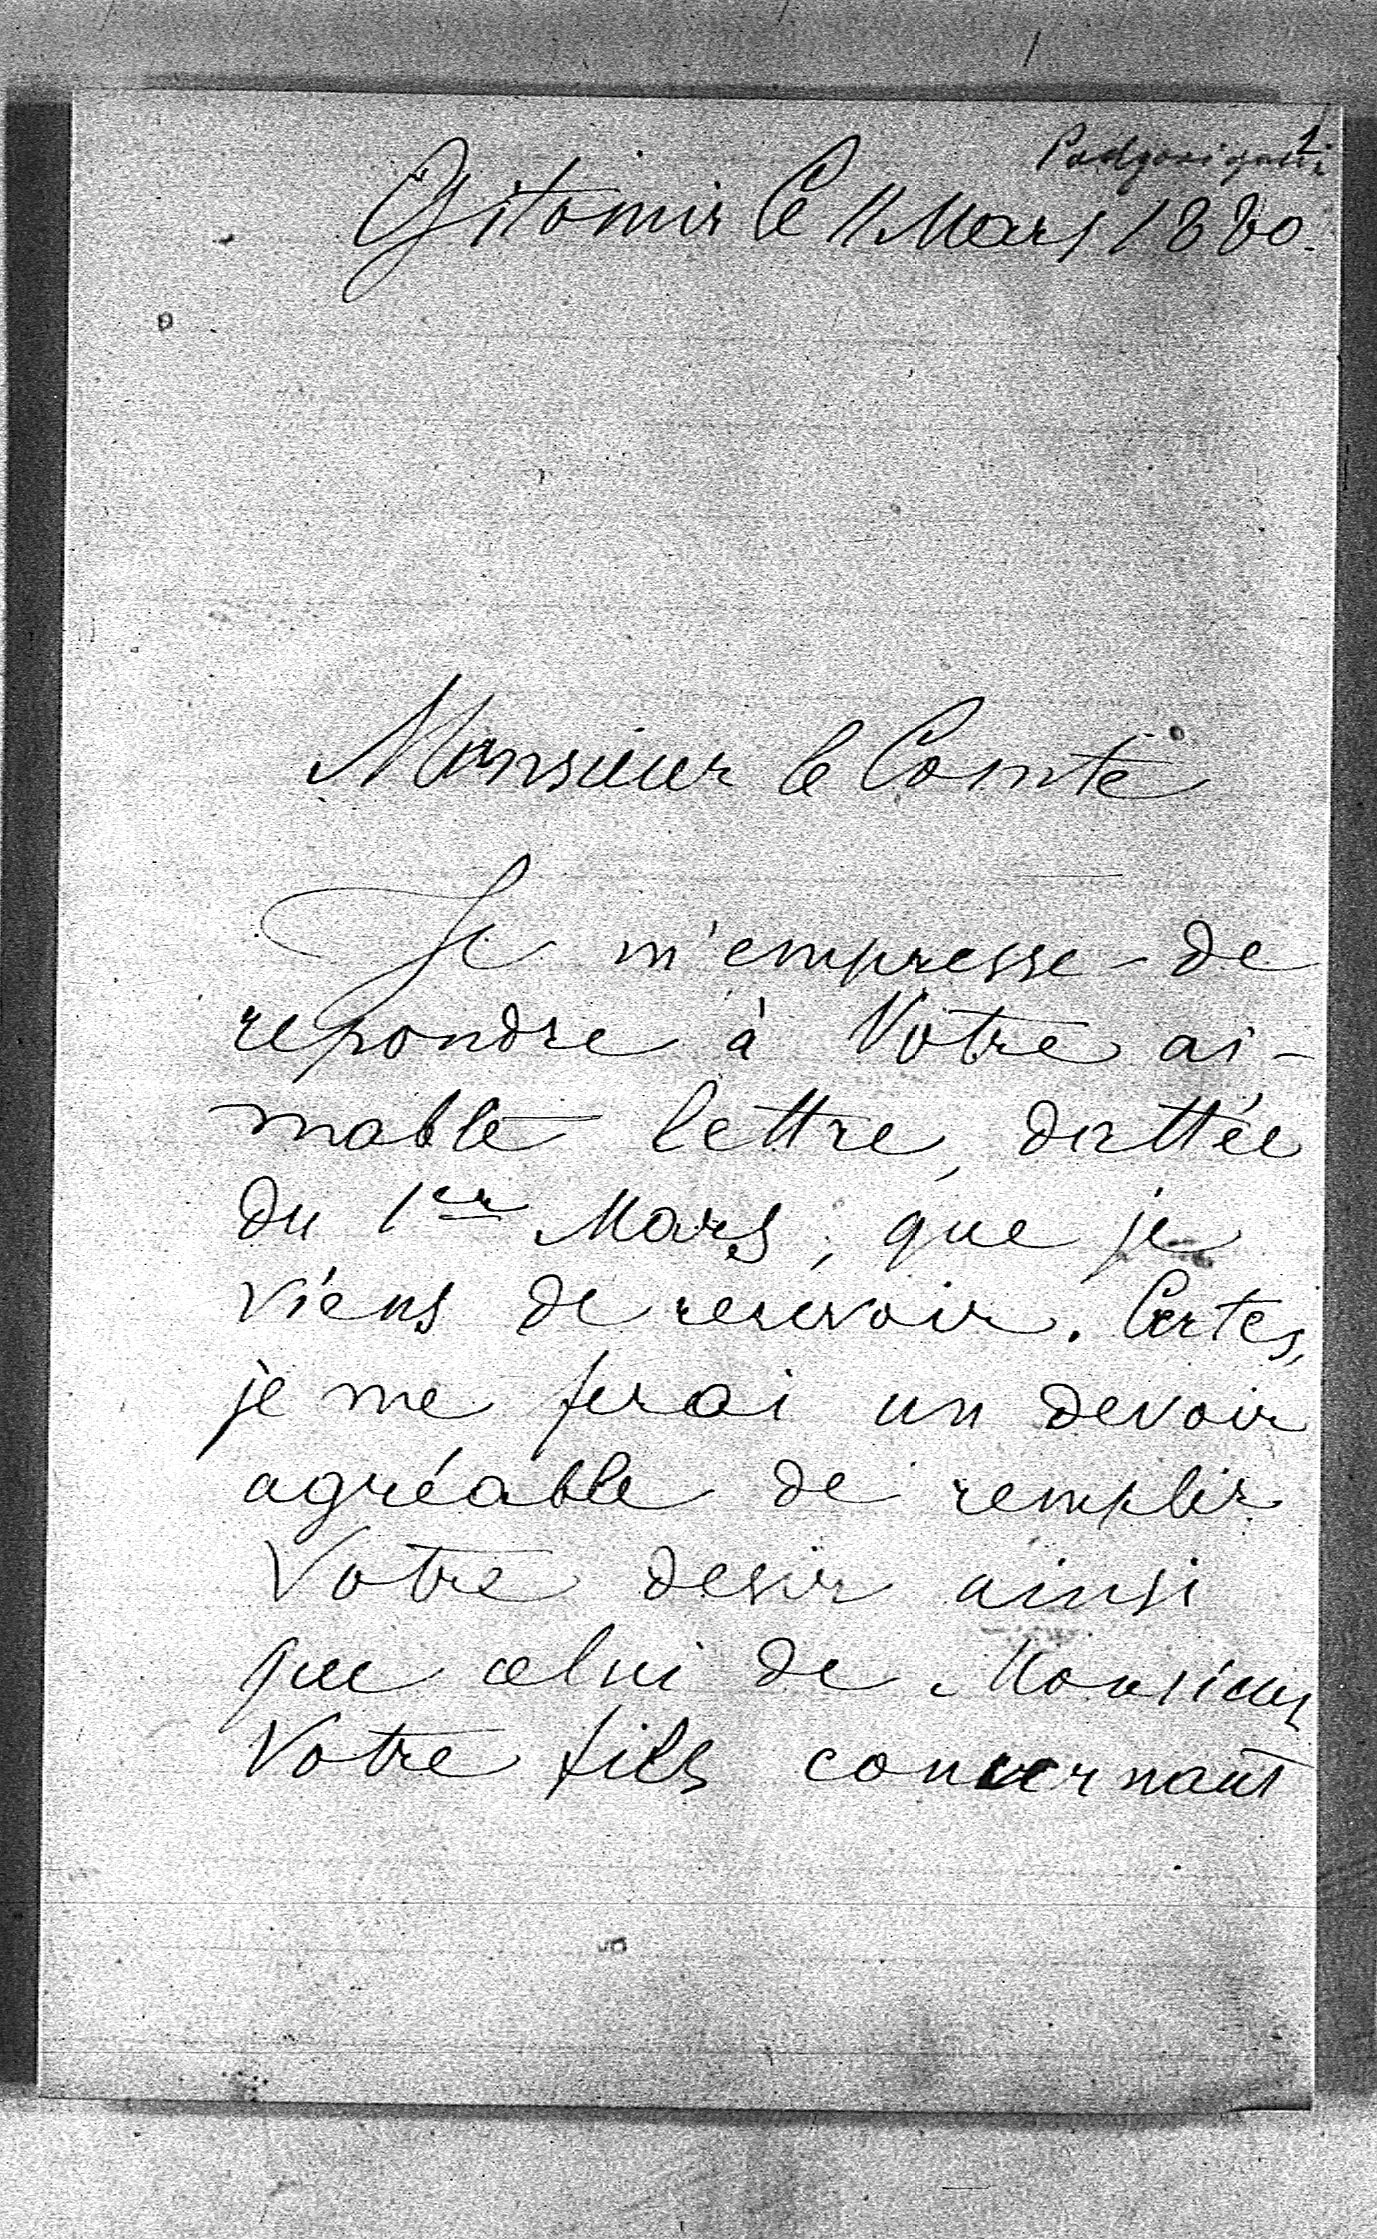 Gitomir le 11 Mars 1880.
Monsieur le Comte
Je m'empresse de
repondre à Votre ai-
mable lettre, dattée
du 1er Mars, que je
viens de resevoir. Certes,
je me ferai un devoir
agréable de remplir
Votre desir ainsi
que celui de Monsieur
Votre fils concernant